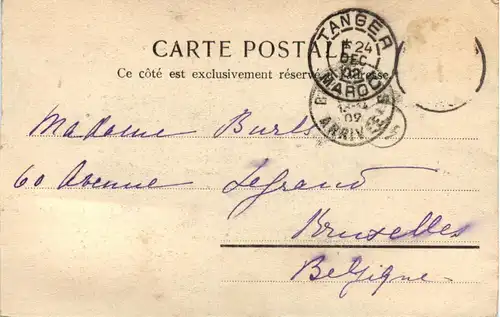 CARTE POSTALE
Ce côté est exclusivement réservé à l'adresse
TANGER
* 24
DEC
02
MAROC
09
ARRIVÉE
Madame Burls
60 Avenue Legrand
Bruxelles
Belgique